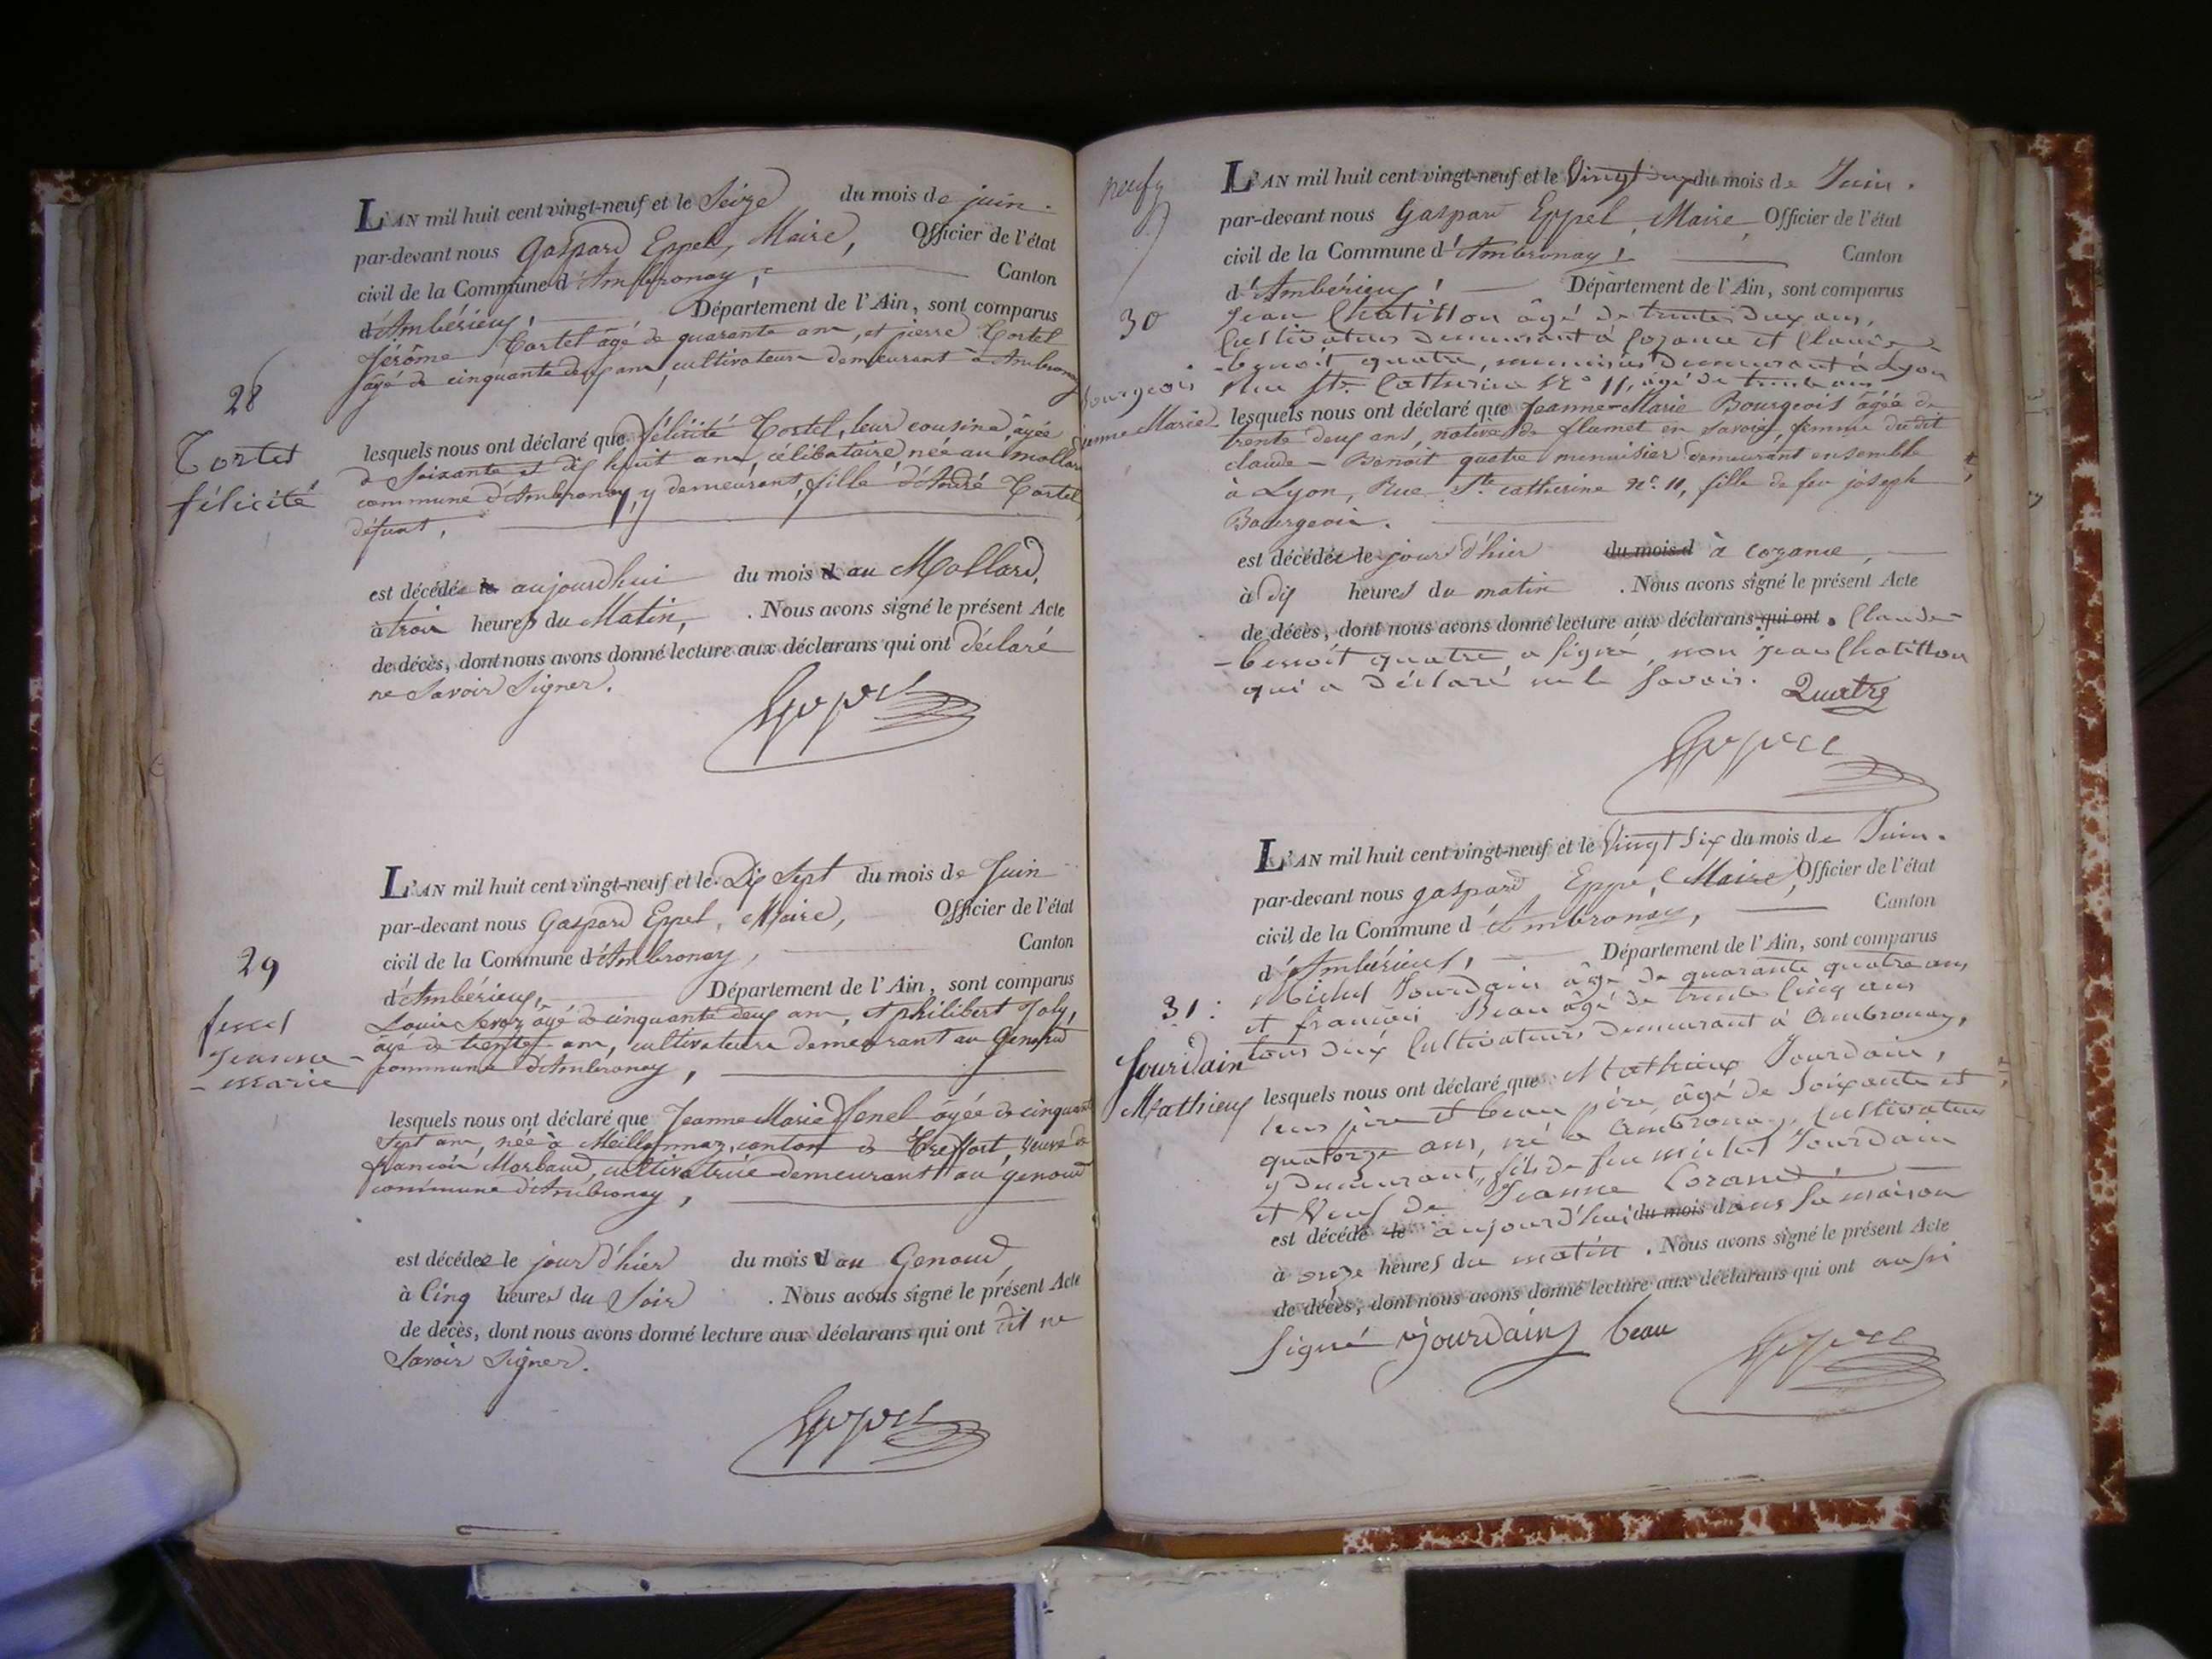 28
Tortel
félicité
L'AN mil huit cent vingt-neuf et le Seize du mois de juin.
par-devant nous Gaspard Eppel, Maire, Officier de l'état
civil de la Commune d'Ambronay, Canton
d'Ambérieux, Département de l'Ain, sont comparus
Jérôme Tortel âgé de quarante ans, et pierre Tortel
âgé de cinquante deux ans, cultivateurs demeurant à Ambronay
lesquels nous ont déclaré que félicité Tortel, leur cousine, âgée
de Soixante et dix huit ans, célibataire, née au mollard
commune d'Ambronay, y demeurant, fille d'André Tortel
défunt,
est décédée le aujourdhui du mois d au Mollard,
à trois heures du Matin, . Nous avons signé le présent Acte
de décès, dont nous avons donné lecture aux déclarans qui ont déclaré
ne Savoir Signer.
Eppel
29
fenel
Jeanne-
-marie
L'AN mil huit cent vingt-neuf et le Dix Sept du mois de Juin
par-devant nous Gaspard Eppel, Maire, Officier de l'état
civil de la Commune d'Ambronay, Canton
d'Ambérieux, Département de l'Ain, sont comparus
Louis âgé de cinquante deux ans, et philibert Joly,
âgé de trente ans, cultivateurs demeurant au Genoud
commune d'Ambronay,
lesquels nous ont déclaré que Jeanne Marie fenel âgée de cinquante
Sept ans, née à Meillonnaz, canton de Treffort, veuve de
francois Morbaud, cultivatrice demeurant au genoud
commune d'Ambronay,
est décédée le jour d'hier du mois d au Genoud,
à Cinq heures du Soir . Nous avons signé le présent Acte
de décès, dont nous avons donné lecture aux déclarans qui ont dit ne
Savoir Signer.
Eppel
neuf
30
Bourgeois
Jeanne Marie
L'AN mil huit cent vingt-neuf et le Vingt deux du mois de Juin.
par-devant nous Gaspard Eppel, Maire, Officier de l'état
civil de la Commune d'Ambronay, Canton
d'Ambérieux, Département de l'Ain, sont comparus
Jean Chatillon âgé de trente deux ans,
Cultivateur demeurant à Cozance et Claude-
-benoît quatre, menuisier demeurant à Lyon
Rue Ste. Catherine No 11, âgé de trente ans
lesquels nous ont déclaré que Jeanne-Marie Bourgeois âgée de
trente deux ans, native de flumet en Savoie, femme dudit
claude-Benoit quatre menuisier demeurant ensemble
à Lyon, Rue Ste catherine No. 11, fille de feu joseph
Bourgeois.
est décédée le jour d'hier du mois d à cozance,
à dix heures du matin . Nous avons signé le présent Acte
de décès, dont nous avons donné lecture aux déclarans qui ont . Claude-
-benoît quatre a signé, non jean Chatillon
qui a déclaré ne le savoir. Quatre
Eppel
31.
Jourdain
Mathieux
L'AN mil huit cent vingt-neuf et le Vingt Six du mois de Juin.
par-devant nous gaspard Eppel, Maire, Officier de l'état
civil de la Commune d'Ambronay, Canton
d'Ambérieux, Département de l'Ain, sont comparus
Michel Jourdain âgé de quarante quatre ans
et françois Beau âgé de trente Cinq ans
tous deux Cultivateurs demeurant à Ambronay,
lesquels nous ont déclaré que Mathieux Jourdain,
leur père et beau père âgé de Soixante et
quatorze ans, né a Ambronay, Cultivateur
y demeurant, fils de feu michel Jourdain
et Veuf de Jeanne Corand
est décédé le aujourd'hui du mois dans Sa maison
à onze heures du matin . Nous avons signé le présent Acte
de décès, dont nous avons donné lecture aux déclarans qui ont aussi
Signé Jourdain beau
Eppel